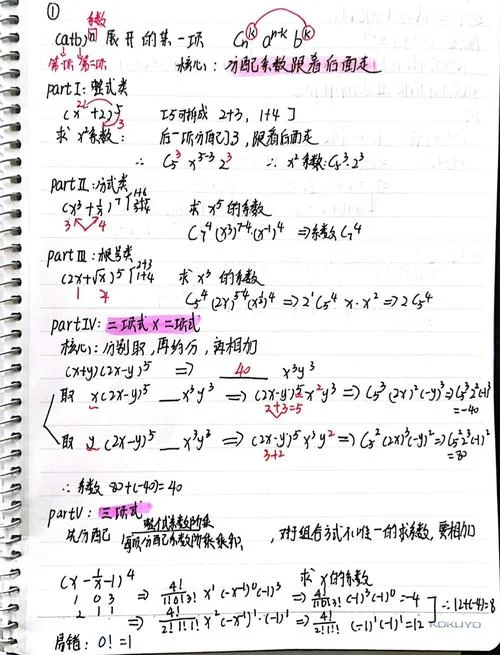 ①
系数
(a+b)ⁿ 展开的某一项 Cₙᵏ aⁿ⁻ᵏ bᵏ
第一项 第二项 核心：分配系数跟着后面走
part I：整式类
(x+2)⁵ [5可拆成 2+3, 1+4]
2 3
求 x²系数： 后一项分配3，跟着后面走
∴ C₅³ x⁵⁻³ 2³ ∴ x²系数：C₅³·2³
part II：分式类
(x³+1/x)⁷ 1+6 3+4
3 4
求 x⁵ 的系数
C₇⁴ (x³)⁷⁻⁴·(x⁻¹)⁴ ⇒系数 C₇⁴
part III：根号类
(2x+√x)⁵ 2+3 1+4
1 4
求 x³ 的系数
C₅⁴ (2x)⁵⁻⁴ (x^½)⁴ ⇒ 2¹ C₅⁴ x·x² ⇒ 2C₅⁴
part IV：二项式 x 二项式
核心：分别取，再约分，再相加
(x+y)(2x-y)⁵ ⇒ 40 x³y³
取 x(2x-y)⁵ __x³y³ ⇒ (2x-y)⁵ x²y³ ⇒ C₅³ (2x)²(-y)³ ⇒ C₅³2²(-1)³
2+3=5
=-40
取 y(2x-y)⁵ __x³y³ ⇒ (2x-y)⁵ x³y² ⇒ C₅² (2x)³(-y)² ⇒ C₅²2³(-1)²
3+2
=80
∴ 系数 80+(-40)=40
part V：三项式
先分配 整体系数阶乘
每项分配系数阶乘乘积
，对于组合方式不唯一的求系数，要相加
(x-1/x-1)⁴ 求 x 的系数
1 0 3 ⇒ 4!/1!0!3! x¹(-x⁻¹)⁰(-1)³ ⇒ 4!/1!0!3! (-1)³(-1)⁰ = -4
2 1 1 ⇒ 4!/2!1!1! x²(-x⁻¹)¹·(-1)¹ ⇒ 4!/2!1!1! (-1)¹(-1)¹=12
∴ 12+(-4)=8
KOKUYO
易错：0!=1